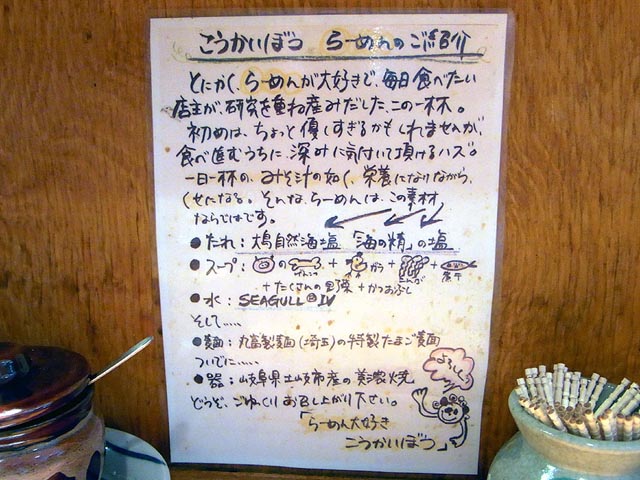 こうかいぼう らーめんのご紹介
とにかく、らーめんが大好きで、毎日食べたい
店主が、研究を重ね産みだした、この一杯。
初めは、ちょっと優しすぎるかもしれませんが、
食べ進むうちに、深みに気付いて頂けるハズ。
一日一杯の、みそ汁の如く、栄養になりながら、
くせになる。そんな、らーめんは、この素材
ならではです。
●たれ：大島自然海塩「海の精」の塩
●スープ： の げんこつ + がら + + 煮干
+たくさんの野菜+かつおぶし
●水：SEAGULL Ⅳ
そして.....
●麺：丸富製麺(埼玉)の特製たまご麺
ついでに.....
●器：岐阜県土岐市産の美濃焼
どうぞ、ごゆっくりお召し上がり下さい。
よろしく
「らーめん大好き
こうかいぼう」